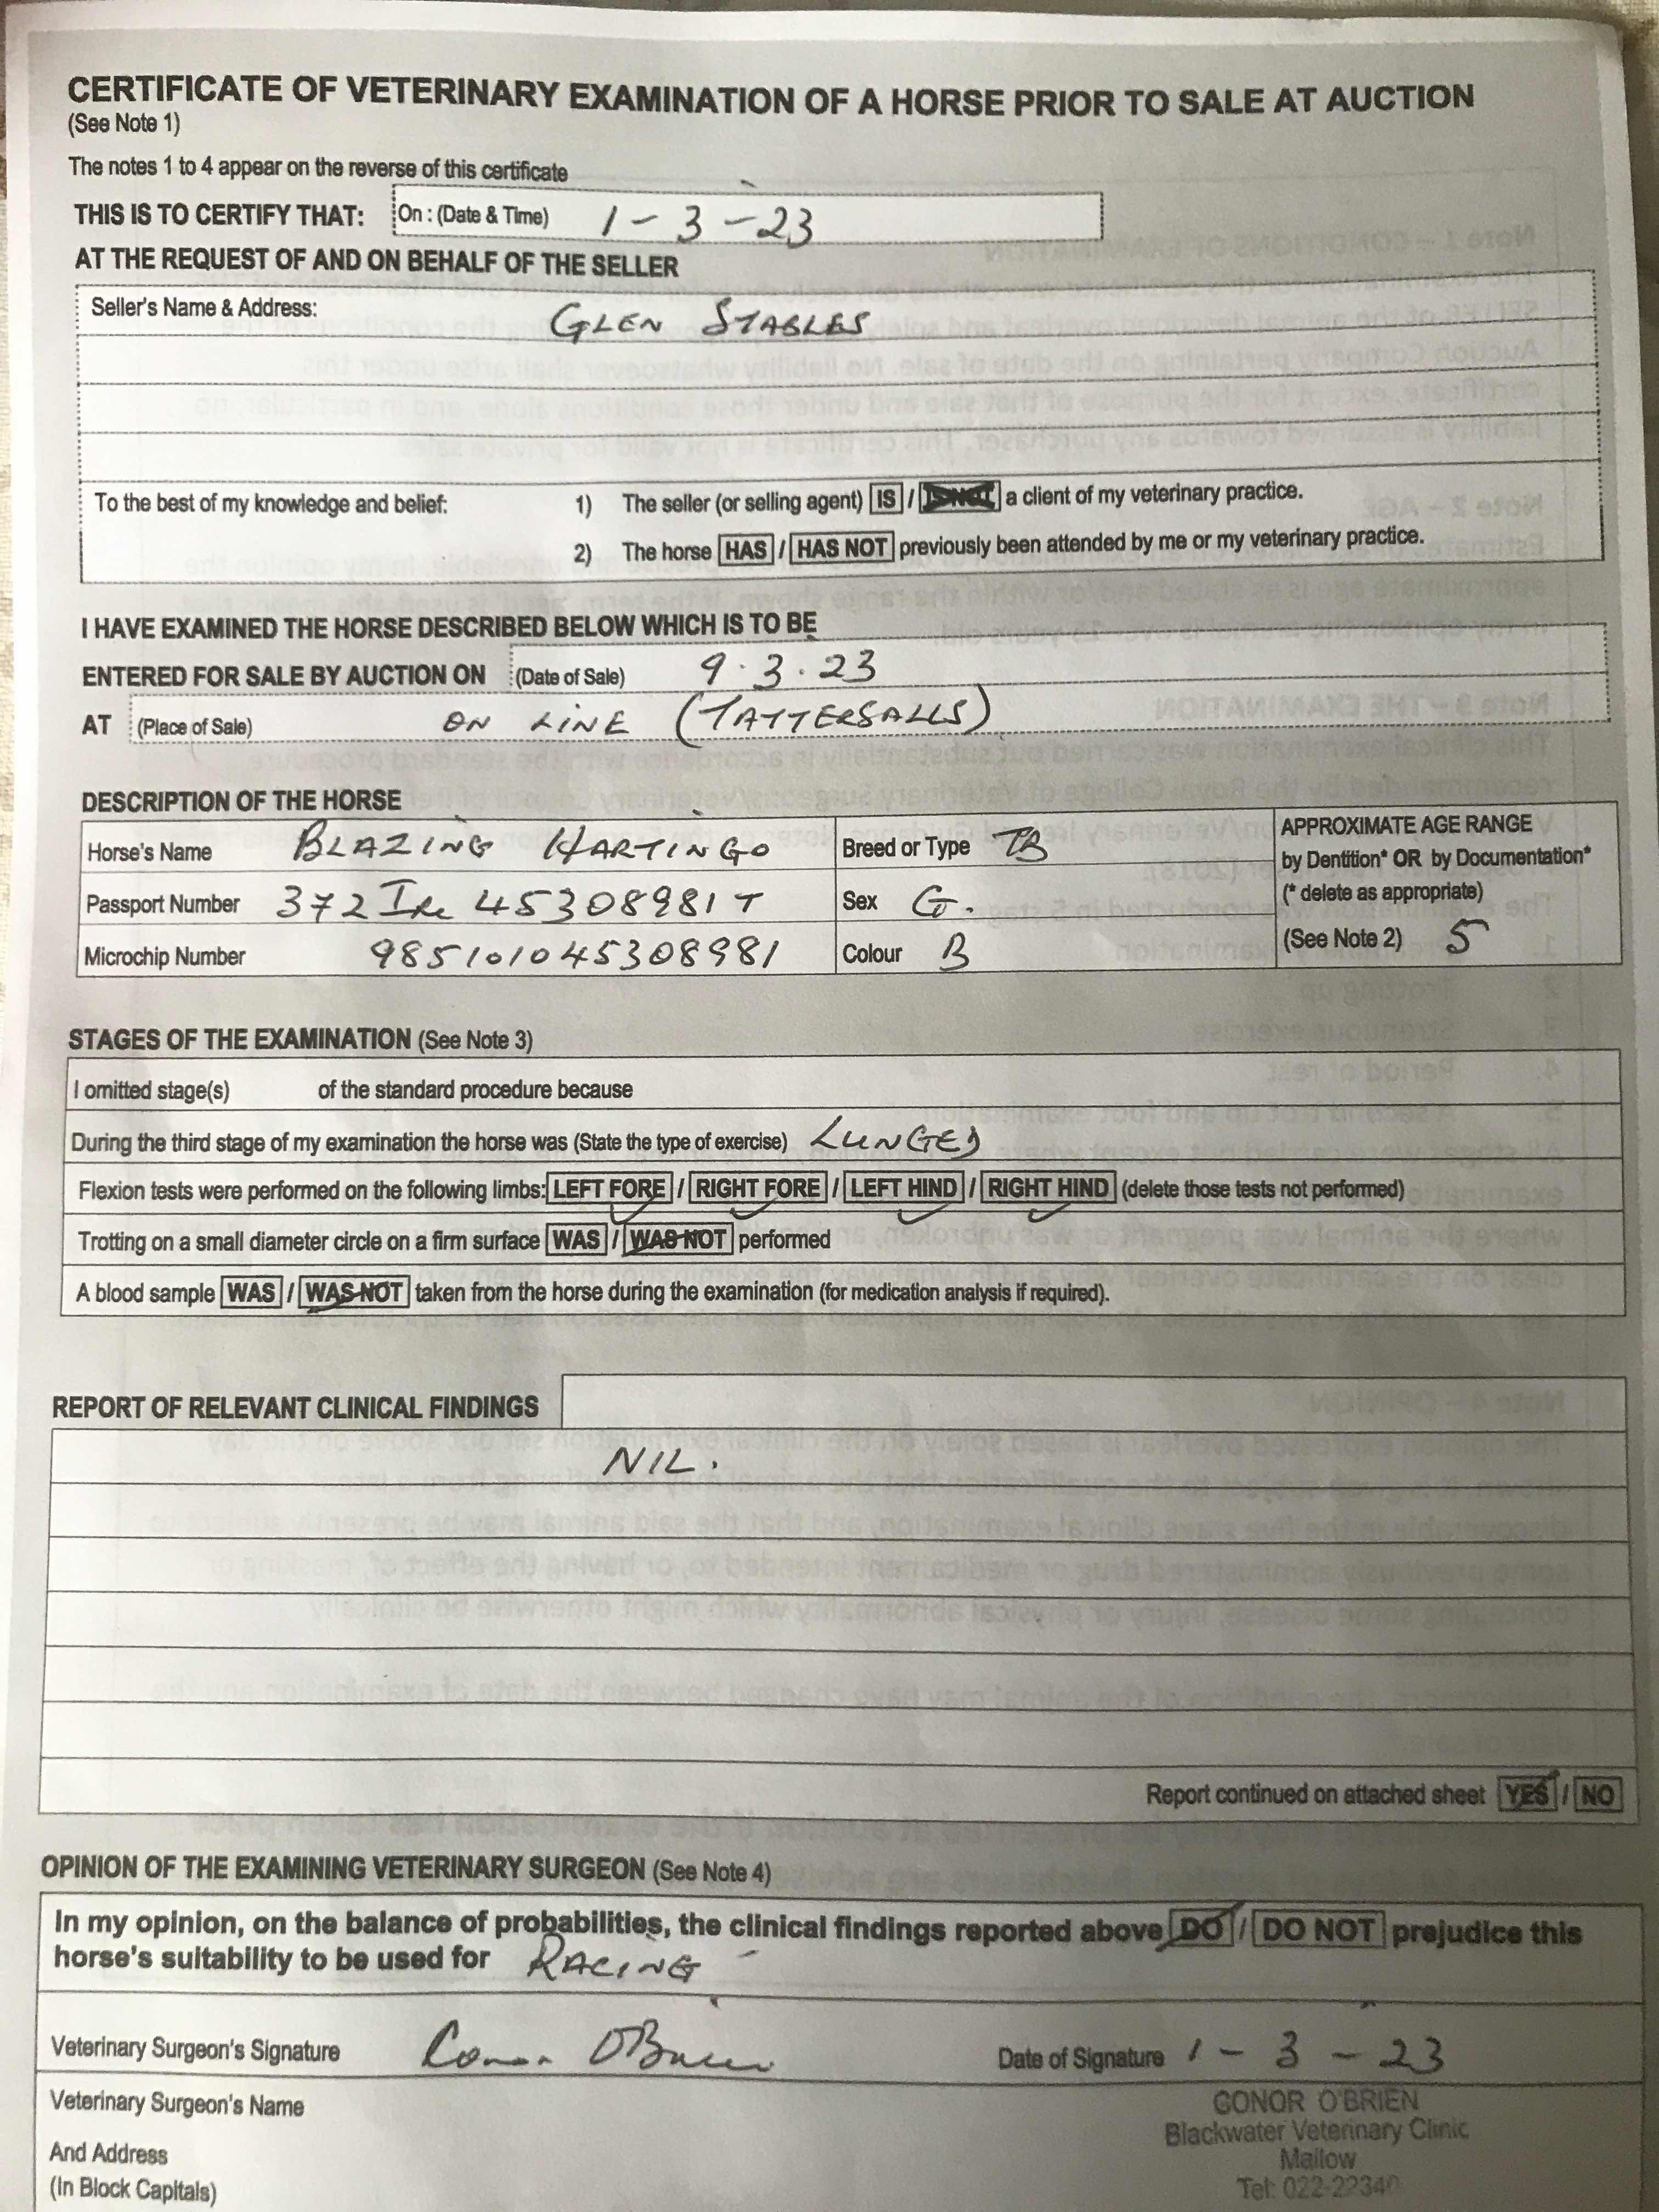 CERTIFICATE OF VETERINARY EXAMINATION OF A HORSE PRIOR TO SALE AT AUCTION
(See Note 1)
The notes 1 to 4 appear on the reverse of this certificate
THIS IS TO CERTIFY THAT: On : (Date & Time) 1 - 3 - 23
AT THE REQUEST OF AND ON BEHALF OF THE SELLER
Seller's Name & Address: GLEN STABLES
To the best of my knowledge and belief: 1) The seller (or selling agent) IS / IS NOT a client of my veterinary practice.
2) The horse HAS / HAS NOT previously been attended by me or my veterinary practice.
I HAVE EXAMINED THE HORSE DESCRIBED BELOW WHICH IS TO BE
ENTERED FOR SALE BY AUCTION ON (Date of Sale) 9.3.23
AT (Place of Sale) ON LINE (TATTERSALLS)
DESCRIPTION OF THE HORSE
Horse's Name BLAZING HARTINGO Breed or Type TB APPROXIMATE AGE RANGE
by Dentition* OR by Documentation*
Passport Number 372 Ire 45308981 T Sex G. (* delete as appropriate)
Microchip Number 985101045308981 Colour B (See Note 2) 5
STAGES OF THE EXAMINATION (See Note 3)
I omitted stage(s) of the standard procedure because
During the third stage of my examination the horse was (State the type of exercise) LUNGED
Flexion tests were performed on the following limbs: LEFT FORE / RIGHT FORE / LEFT HIND / RIGHT HIND (delete those tests not performed)
Trotting on a small diameter circle on a firm surface WAS / WAS NOT performed
A blood sample WAS / WAS NOT taken from the horse during the examination (for medication analysis if required).
REPORT OF RELEVANT CLINICAL FINDINGS
NIL.
Report continued on attached sheet YES / NO
OPINION OF THE EXAMINING VETERINARY SURGEON (See Note 4)
In my opinion, on the balance of probabilities, the clinical findings reported above DO / DO NOT prejudice this
horse's suitability to be used for RACING
Veterinary Surgeon's Signature Conor O'Brien Date of Signature 1 - 3 - 23
Veterinary Surgeon's Name CONOR O'BRIEN
Blackwater Veterinary Clinic
And Address Mallow
(In Block Capitals) Tel: 022-22340